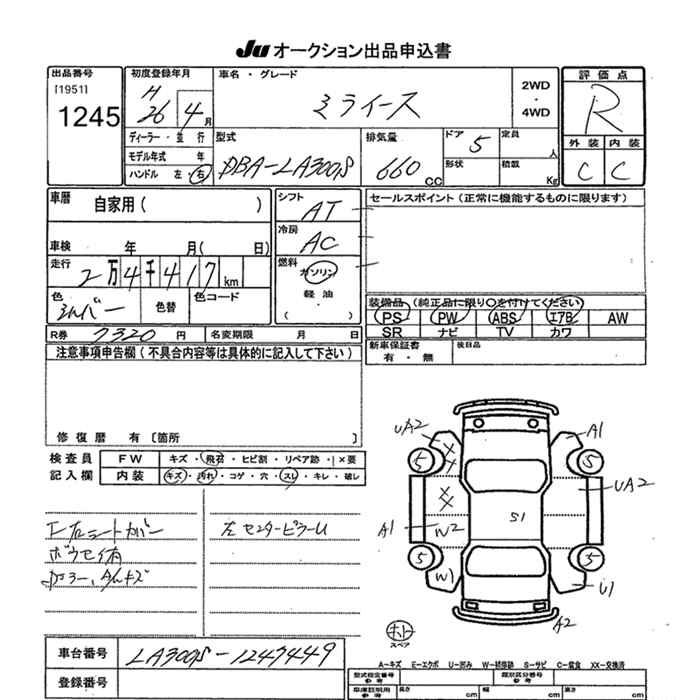 Ju オークション出品申込書
出品番号
[1951]
1245
初度登録年月
H
26 4 月
車名・グレード
ミライース
2WD
・
4WD
評価点
R
外装 内装
C C
ディーラー・並行
モデル年式 年
ハンドル 左・右
型式
DBA-LA300S
排気量
660 CC
ドア 5
形状
定員
人
積載
Kg
車歴
自家用( )
車検 年 月( 日)
走行
2万4千417km
色
シルバー
色替
色コード
シフト
AT
冷房
AC
燃料
ガソリン
・
軽油
・
( )
セールスポイント(正常に機能するものに限ります)
装備品(純正品に限り○を付けてください)
PS PW ABS エアB AW
SR ナビ TV カワ
R券 7320 円
名変期限 月 日
新車保証書
有・無
後日品
注意事項申告欄(不具合内容等は具体的に記入して下さい)
修復歴 有〔箇所 〕
検査員
記入欄
FW キズ・飛石・ヒビ割・リペア跡・×要
内装 キズ・汚れ・コゲ・穴・スレ・キレ・破レ
左センターピラーU
UA2
A1
5
5
UA2
A1
W2
S1
5
5
W1
U1
A2
スペア
車台番号
LA300S-1247449
登録番号
A-キズ E-エクボ U-凹み W-補修跡 S-サビ C-腐食 XX-交換済
型式指定番号
参考
類別区分番号
参考
車庫証明用
参考
長さ cm 幅 cm 高さ cm